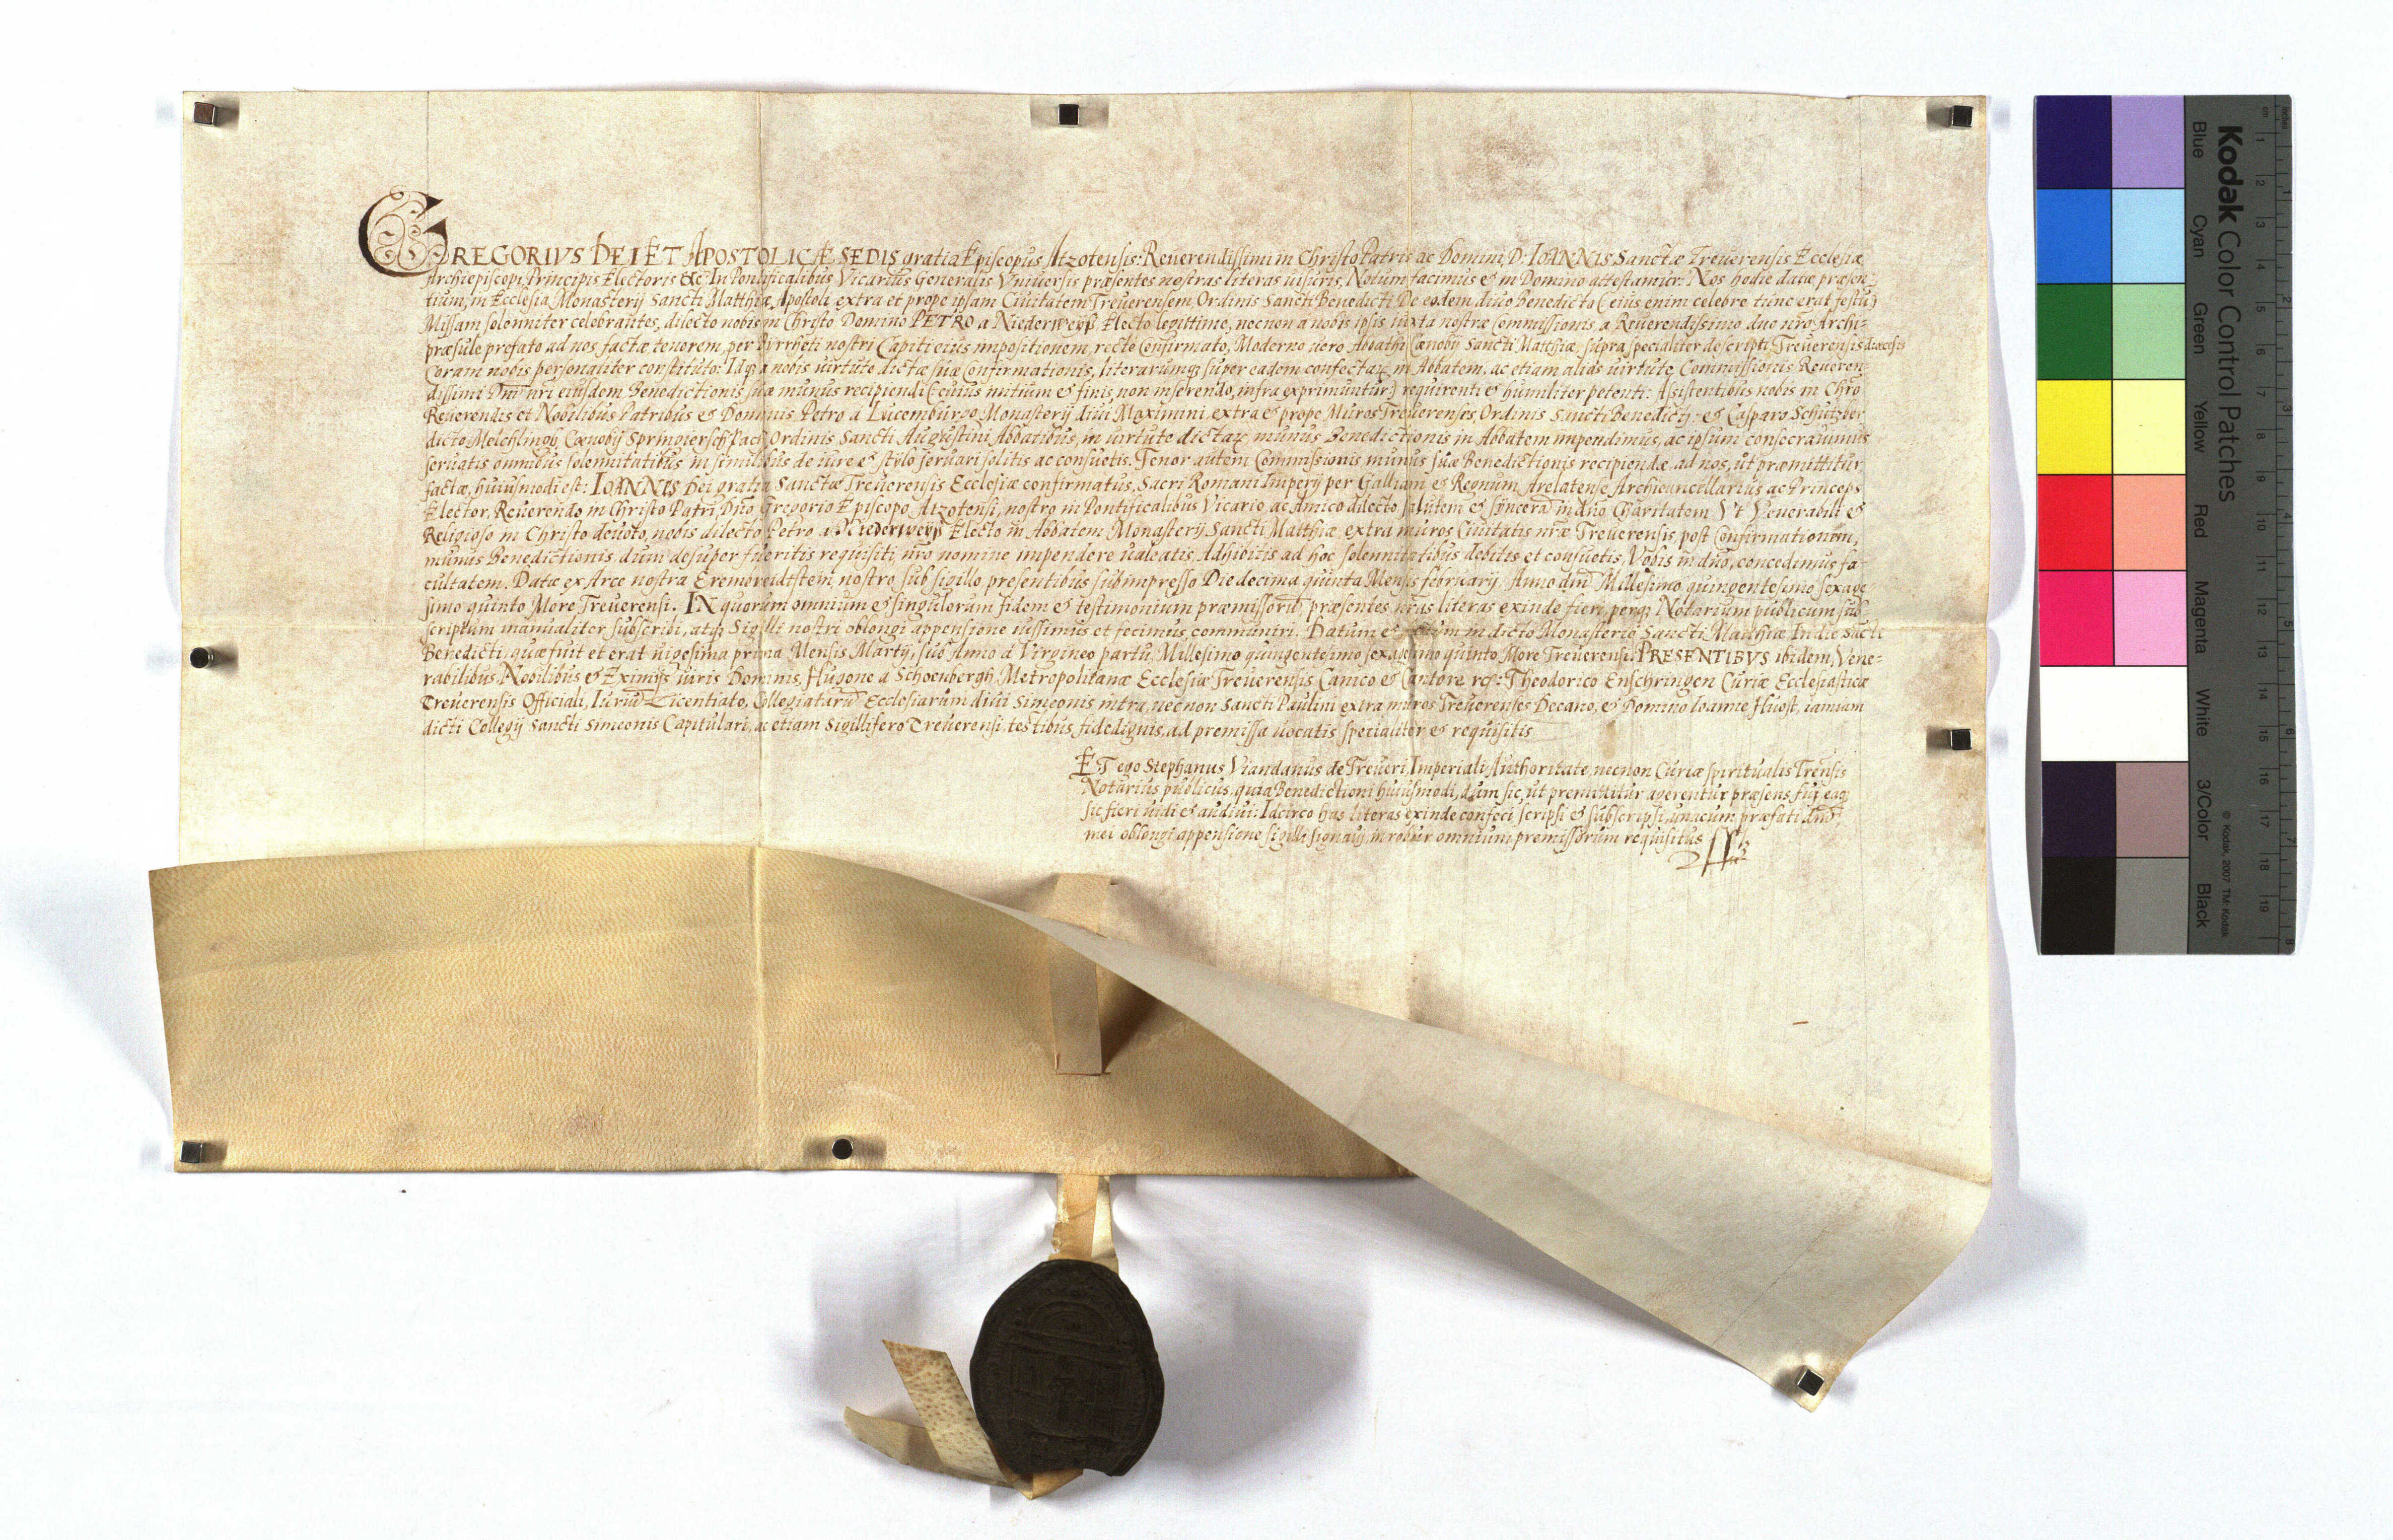 GREGORIVS DEI ET APOSTOLICÆ SEDIS gratia Episcopus Atzotensis: Reuerendissimi in Christo Patris ac Domini, D: IOANNIS Sanctæ Treuerensis Ecclesiæ
Archiepiscopi Principis Electoris &c In Pontificalibus Vicarius Generalis Vniuersis præsentes nostras literas uisuris, Notum facimus & in Domino attestamur: Nos hodie datæ præsen-
tium, in Ecclesia Monasterij Sancti Matthiæ Apostoli extra et prope ipsam Ciuitatem Treuerensem Ordinis Sancti Benedicti De eodem diuo Benedicto (eius enim celebre tunc erat festu)
Missam solenniter celebrantes, dilecto nobis in Christo Domino PETRO a Niederweyß Electo legittime, necnon a nobis ipsis iuxta nostræ Commissionis, a Reuerendissimo dno nro Archi-
præsule prefato ad nos factæ tenorem, per Birrheti nostri Capiti eius impositionem, recte Confirmato, Moderno uero Abbati Cœnobij Sancti Matthiæ, supra specialiter descripti Treuerensis diœcesis
Coram nobis personaliter constituto: Idq; a nobis uirtute dictæ suæ Confirmationis, literarumq; super eadem confectaz in Abbatem, ac etiam alias uirtute Commissionis Reueren-
dissimi Dni nri eiusdem Benedictionis suæ munus recipiendi (cuius initium & finis, non inserendo, infra exprimuntur) requirenti & humiliter petenti: Asistentibus nobis in Chro
Reuerendis et Nobilibus Patribus & Dominis Petro a Lucemburgo Monasterij diui Maximini, extra & prope Muros Treuerenses, Ordinis Sancti Benedicti: & Casparo Schutzler
dicto Melchlingh, Cœnobij Springierschpach, Ordinis Sancti Augustini Abbatibus, in uirtute dictaz munus Benedictionis in Abbatem impendimus, ac ipsum consecrauimus
seruatis omnibus solennitatibus in similibus de iure & stylo seruari solitis ac consuetis. Tenor autem Commissionis munus suæ Benedictionis recipiendæ, ad nos, ut præmittitur,
factæ, huiusmodi est: IOANNIS Dei gratia Sanctæ Treuerensis Ecclesiæ confirmatus, Sacri Romani Imperij per Galliam & Regnum Arelatense Archicancellarius ac Princeps
Elector, Reuerendo in Christo Patri Dno Gregorio Episcopo Atzotensi, nostro in Pontificalibus Vicario, ac Amico dilecto, salutem & synceram in dno Charitatem Vt Venerabili &
Religioso in Christo deuoto, nobis dilecto Petro a Niederweyß Electo in Abbatem Monasterij Sancti Matthiæ extra muros Ciuitatis nræ Treuerensis, post Confirmationem,
munus Benedictionis, dum desuper fueritis requisiti, nro nomine impendere ualeatis, Adhibitis ad hoc solennitatibus debitis et consuetis, Vobis in dno, concedimus fa-
cultatem. Datæ ex Arce nostra Erembreidtstein nostro, sub sigillo presentibus subimpresso Die decima quinta Mensis february. Anno dni Millesimo quingentesimo sexage-
simo quinto More Treuerensi. IN quorum omnium & singulorum fidem & testimonium præmissoru præsentes nras literas exinde fieri, perq; Notarium publicum sub-
scriptum manualiter subscribi, atq; Sigilli nostri oblongi appensione iussimus et fecimus communiri. Datum & in dicto Monasterio Sancti Matthiæ In die Sacti
Benedicti, quæ fuit et erat uigesima prima Mensis Martij, sub Anno a Virgineo partu, Millesimo quingentesimo sexagesimo quinto More Treuerensi. PRESENTIBVS ibidem, Vene-
rabilibus, Nobilibus & Eximijs uiris Dominis, Hugone a Schoenbergh, Metropolitanæ Ecclesiæ Treuerensis Canico & Cantore, Theodorico Enschringen Curiæ Ecclesiasticæ
Treuerensis Officiali, Iuriu Licentiato, Collegiataru Ecclesiarum diui Simeonis intra, necnon Sancti Paulini extra muros Treuerenses Decano, & Domino Ioanne Huost, iamiam
dicti Collegij Sancti Simeonis Capitulari, ac etiam Sigillifero Treuerensi, testibus fidedignis, ad premissa uocatis specialiter & requisitis
ET ego Stephanus Viandanus de Treueri, Imperiali Authoritate, necnon Curiæ spiritualis Treusis
Notarius publicus, quia Benedictioni huiusmodi, dum sic, ut premittitur agerentur præsens fui eaq;
sic fieri uidi & audiui: Idcirco has literas exinde confeci, scripsi & subscripsi, unacum præfati dni
mei oblongi appensione sigilli signaui, in robur omnium premissorum requisitus
Kodak Color Control Patches
Blue Cyan Green Yellow Red Magenta White 3/Color Black
© Kodak, 2007 TM: Kodak
cm 1 2 3 4 5 6 7 8 9 10 11 12 13 14 15 16 17 18 19
inches 1 2 3 4 5 6 7 8